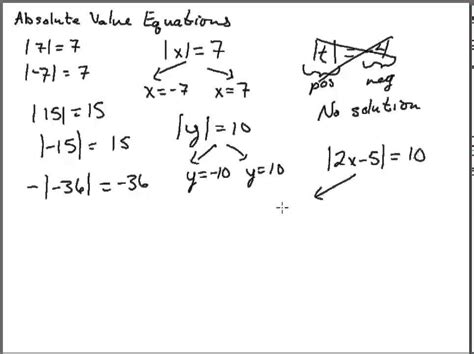 Absolute Value Equations
|7|=7
|-7|=7
|15|=15
|-15|=15
-|-36|=-36
|x|=7
x=-7 x=7
|y|=10
y=-10 y=10
pos neg
No solution
|2x-5|=10